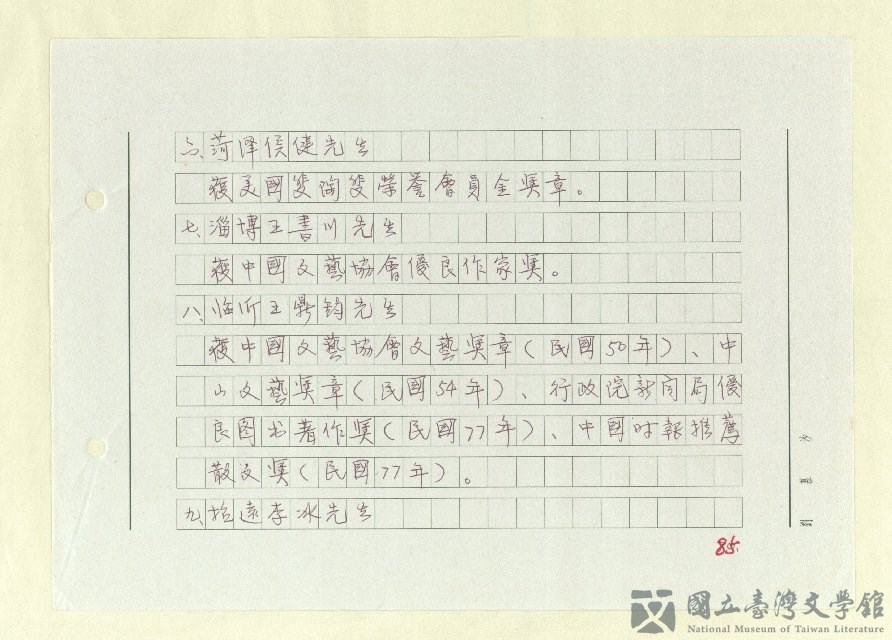 六、菏泽侯健先生
獲美國斐陶斐榮誉會員金奖章。
七、淄博王書川先生
獲中國文藝協會優良作家奖。
八、临沂王鼎鈞先生
獲中國文藝協會文藝奖章(民國50年)、中
山文藝奖章(民國54年)、行政院新闻局優
良图书著作奖(民國77年)、中國时報推薦
散文奖(民國77年)。
九、招遠李冰先生
85.
國立臺灣文學館
National Museum of Taiwan Literature